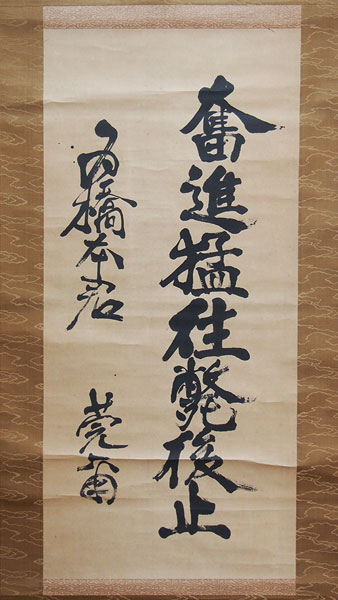 奮進猛往斃後止
為橋本君 莞爾